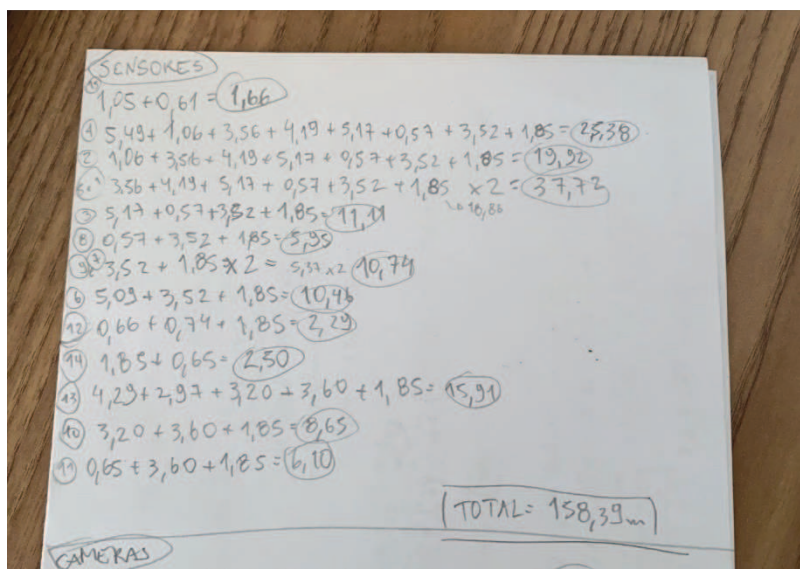 SENSORES
1,05 + 0,61 = 1,66
1 5,49 + 1,06 + 3,56 + 4,19 + 5,17 + 0,57 + 3,52 + 1,85 = 25,38
2 1,06 + 3,56 + 4,19 + 5,17 + 0,57 + 3,52 + 1,85 = 19,92
3,56 + 4,19 + 5,17 + 0,57 + 3,52 + 1,85 x 2 = 37,72
18,86
5,17 + 0,57 + 3,52 + 1,85 = 11,11
8 0,57 + 3,52 + 1,85 = 5,95
9 7 3,52 + 1,85 x 2 = 5,37 x 2 10,74
6 5,09 + 3,52 + 1,85 = 10,46
12 0,66 + 0,74 + 1,85 = 2,29
14 1,85 + 0,65 = 2,50
13 4,29 + 2,97 + 3,20 + 3,60 + 1,85 = 15,91
10 3,20 + 3,60 + 1,85 = 8,65
11 0,65 + 3,60 + 1,85 = 6,10
TOTAL = 158,39m
CAMERAS